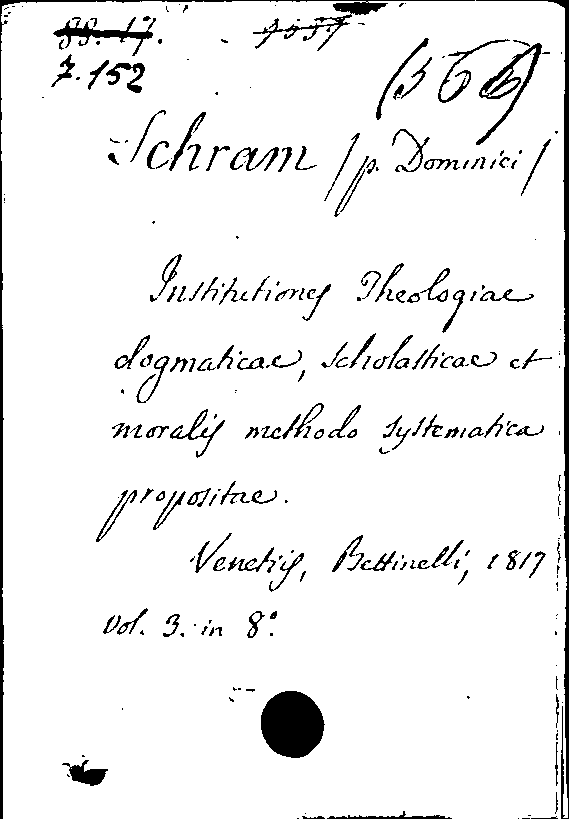 88.17.
7.152
Schram /p. Dominici/
Institutiones Theologiae
dogmaticae, scholasticae et
moralis methodo systematica
propositae.
Venetiis, Bettinelli, 1817
vol. 3. in 8°.